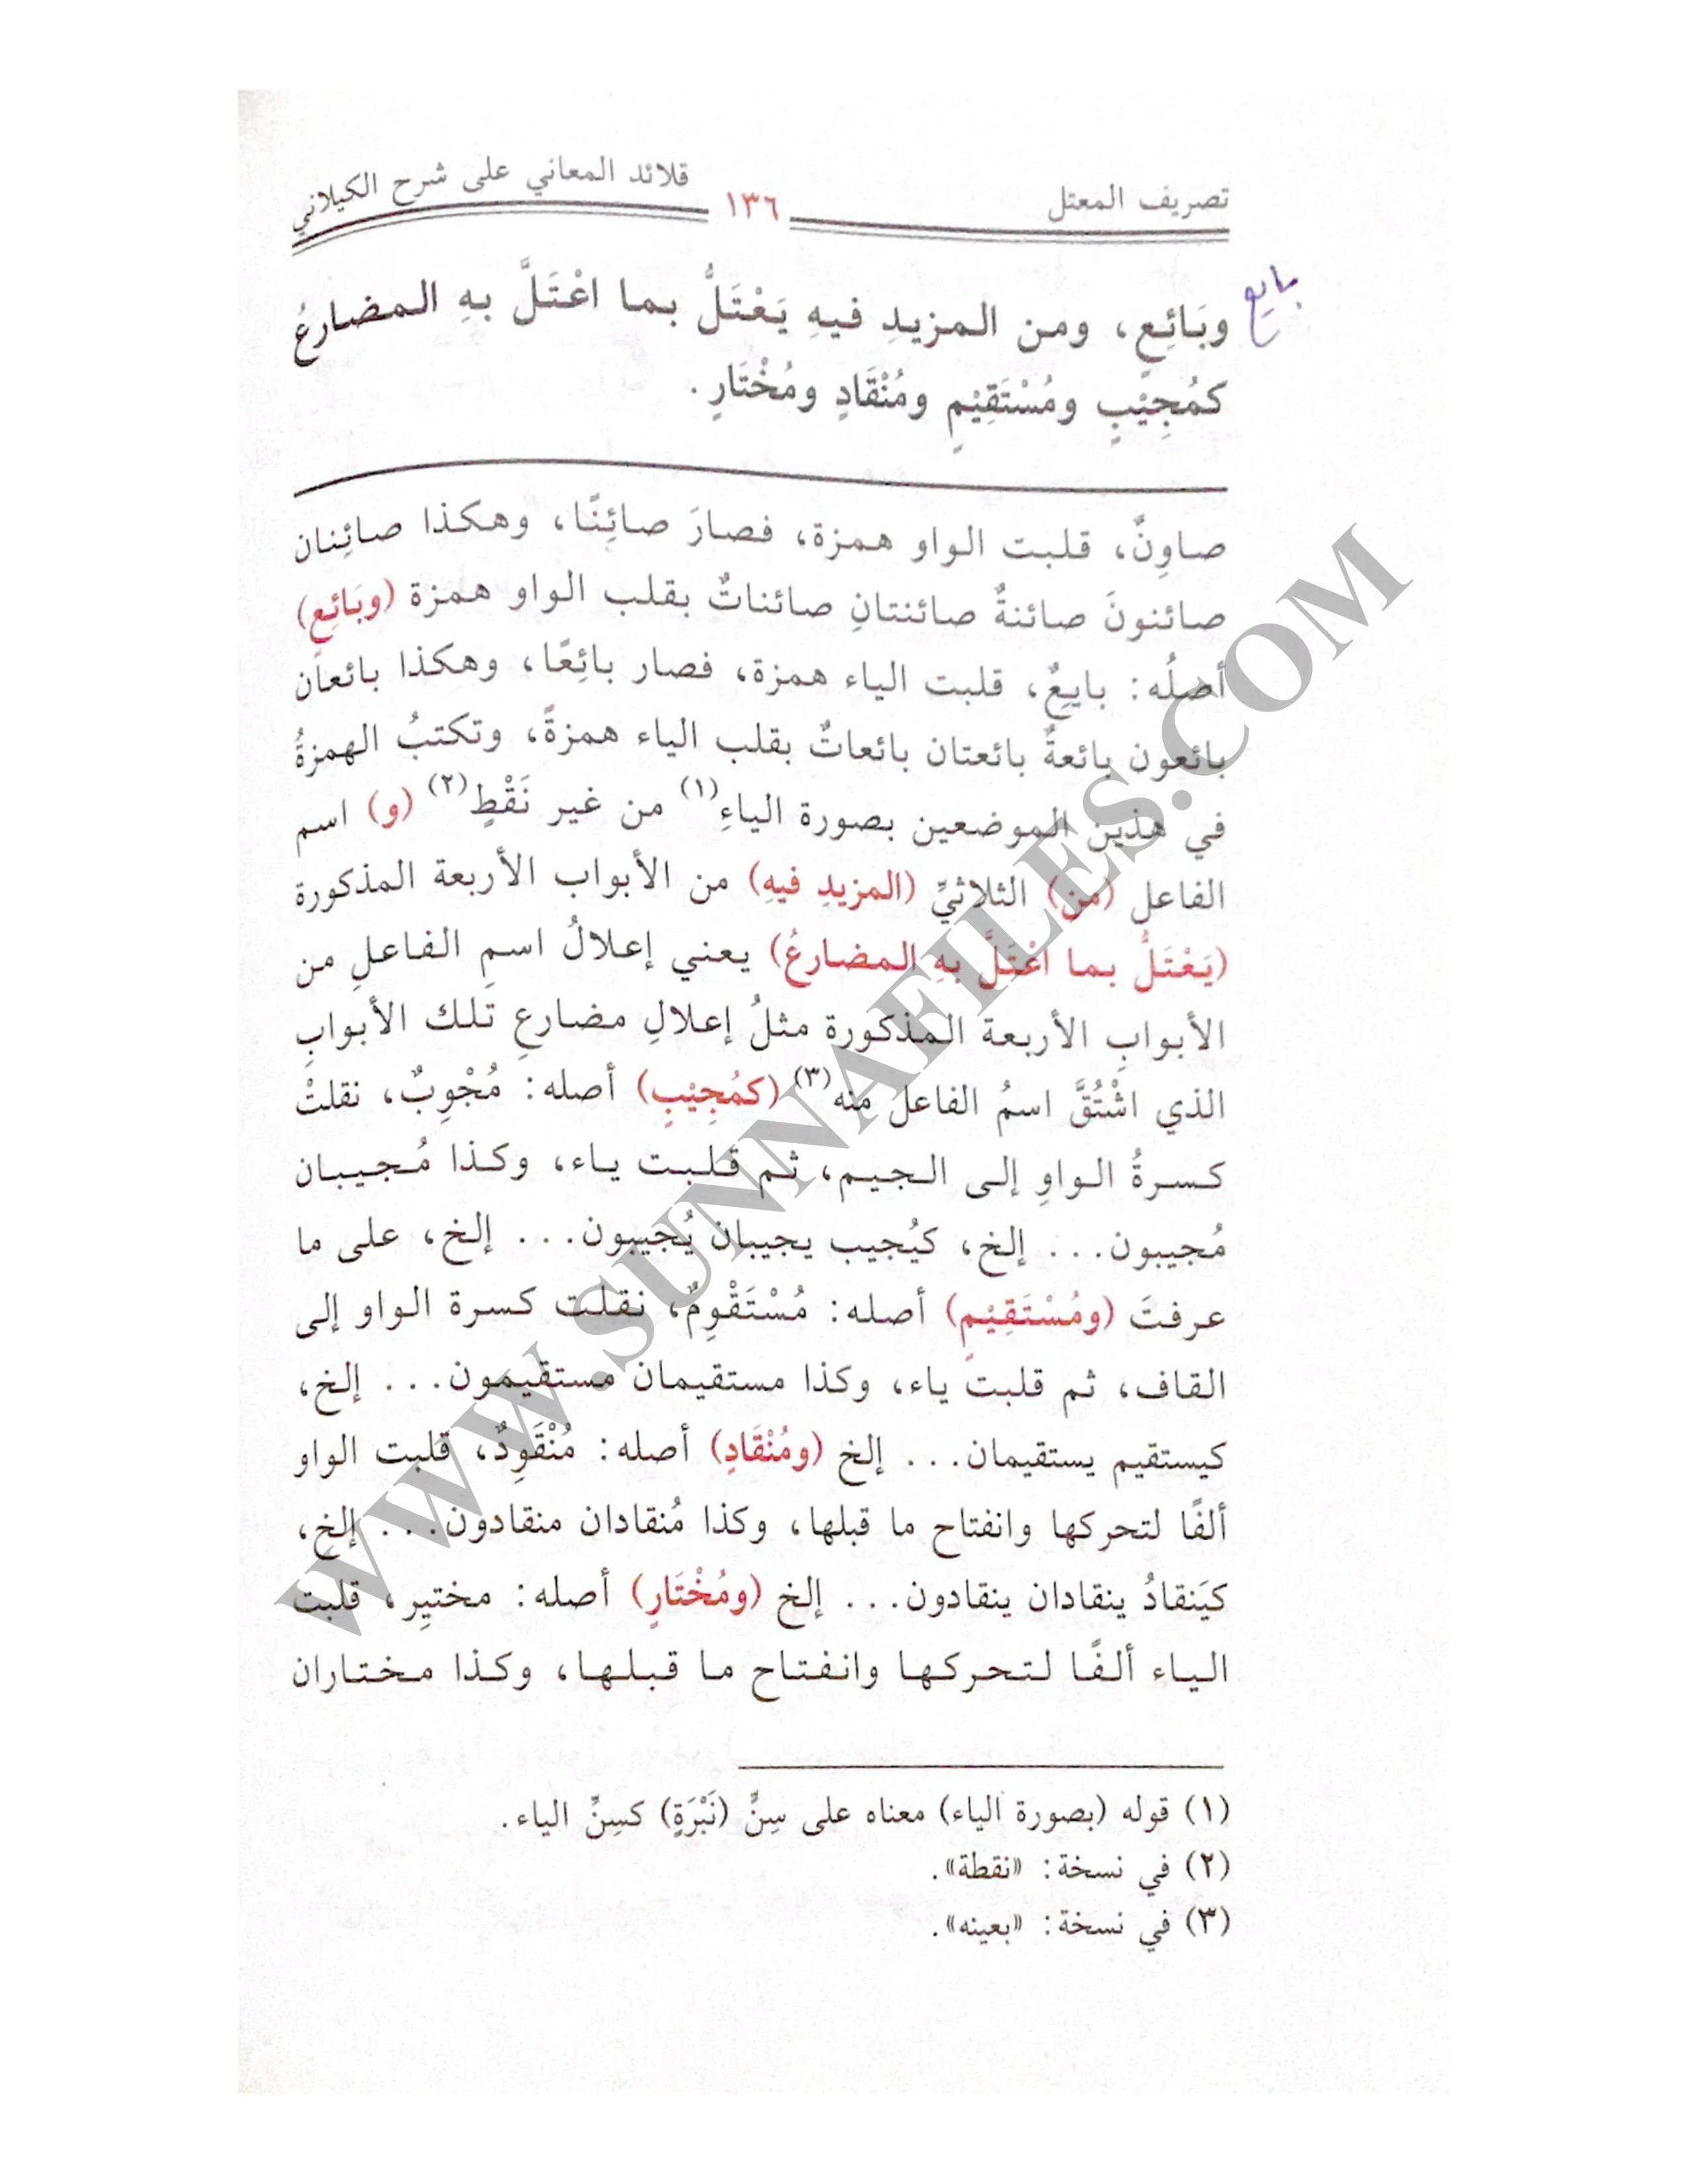 تصريف المعتل ١٣٦ قلائد المعاني على شرح الكيلاني
بايع
وبَائِعٍ، ومن المزيدِ فيهِ يَعْتَلُّ بما اعْتَلَّ بهِ المضارعُ
كمُجِيْبٍ ومُسْتَقِيْمٍ ومُنْقَادٍ ومُخْتَارٍ.
صاوِنٌ، قلبت الواو همزة، فصارَ صائِنًا، وهكذا صائِنان
صائنونَ صائنةٌ صائنتانِ صائناتٌ بقلب الواو همزة (وبَائِعٍ)
أصلُه: بايِعٌ، قلبت الياء همزة، فصار بائِعًا، وهكذا بائعان
بائعون بائعةٌ بائعتان بائعاتٌ بقلب الياء همزةً، وتكتبُ الهمزةُ
في هذين الموضعين بصورة الياءِ(١) من غير نَقْطٍ(٢) (و) اسم
الفاعل (من) الثلاثيِّ (المزيدِ فيهِ) من الأبواب الأربعة المذكورة
(يَعْتَلُّ بما اعْتَلَّ بهِ المضارعُ) يعني إعلالُ اسمِ الفاعلِ من
الأبوابِ الأربعة المذكورة مثلُ إعلالِ مضارعِ تلك الأبوابِ
الذي اشْتُقَّ اسمُ الفاعل منه(٣) (كمُجِيْبٍ) أصله: مُجْوِبٌ، نقلتْ
كسرةُ الواوِ إلى الجيم، ثم قلبت ياء، وكذا مُجيبان
مُجيبون... إلخ، كيُجيب يجيبان يُجيبون... إلخ، على ما
عرفتَ (ومُسْتَقِيْمٍ) أصله: مُسْتَقْوِمٌ، نقلت كسرة الواو إلى
القاف، ثم قلبت ياء، وكذا مستقيمان مستقيمون... إلخ،
كيستقيم يستقيمان... إلخ (ومُنْقَادٍ) أصله: مُنْقَوِدٌ، قلبت الواو
ألفًا لتحركها وانفتاح ما قبلها، وكذا مُنقادان منقادون... إلخ،
كيَنقادُ ينقادان ينقادون... إلخ (ومُخْتَارٍ) أصله: مختيِر، قلبت
الياء ألفًا لتحركها وانفتاح ما قبلها، وكذا مختاران
(١) قوله (بصورة الياء) معناه على سِنٍّ (نَبْرَةٍ) كسِنِّ الياء.
(٢) في نسخة: «نقطة».
(٣) في نسخة: «بعينه».
WWW.SUNNAFILES.COM